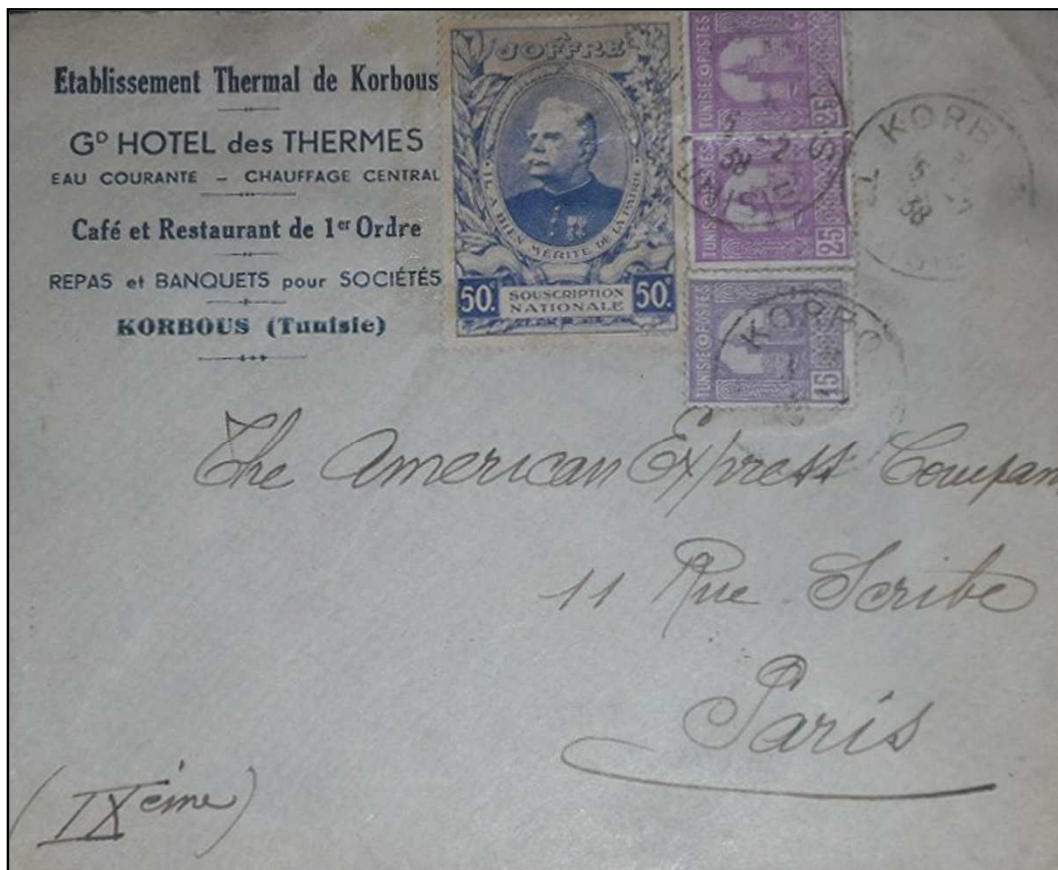 Etablissement Thermal de Korbous
GD HOTEL des THERMES
EAU COURANTE – CHAUFFAGE CENTRAL
Café et Restaurant de 1er Ordre
REPAS et BANQUETS pour SOCIÉTÉS
KORBOUS (Tunisie)
JOFFRE
IL A BIEN MÉRITE DE LA PATRIE
50c SOUSCRIPTION NATIONALE 50c
TUNISIE POSTES 25
TUNISIE POSTES 25
TUNISIE POSTES 15
KORB
38
KORBO
The American Express Compan
11 Rue Scribe
Paris
(IXème)